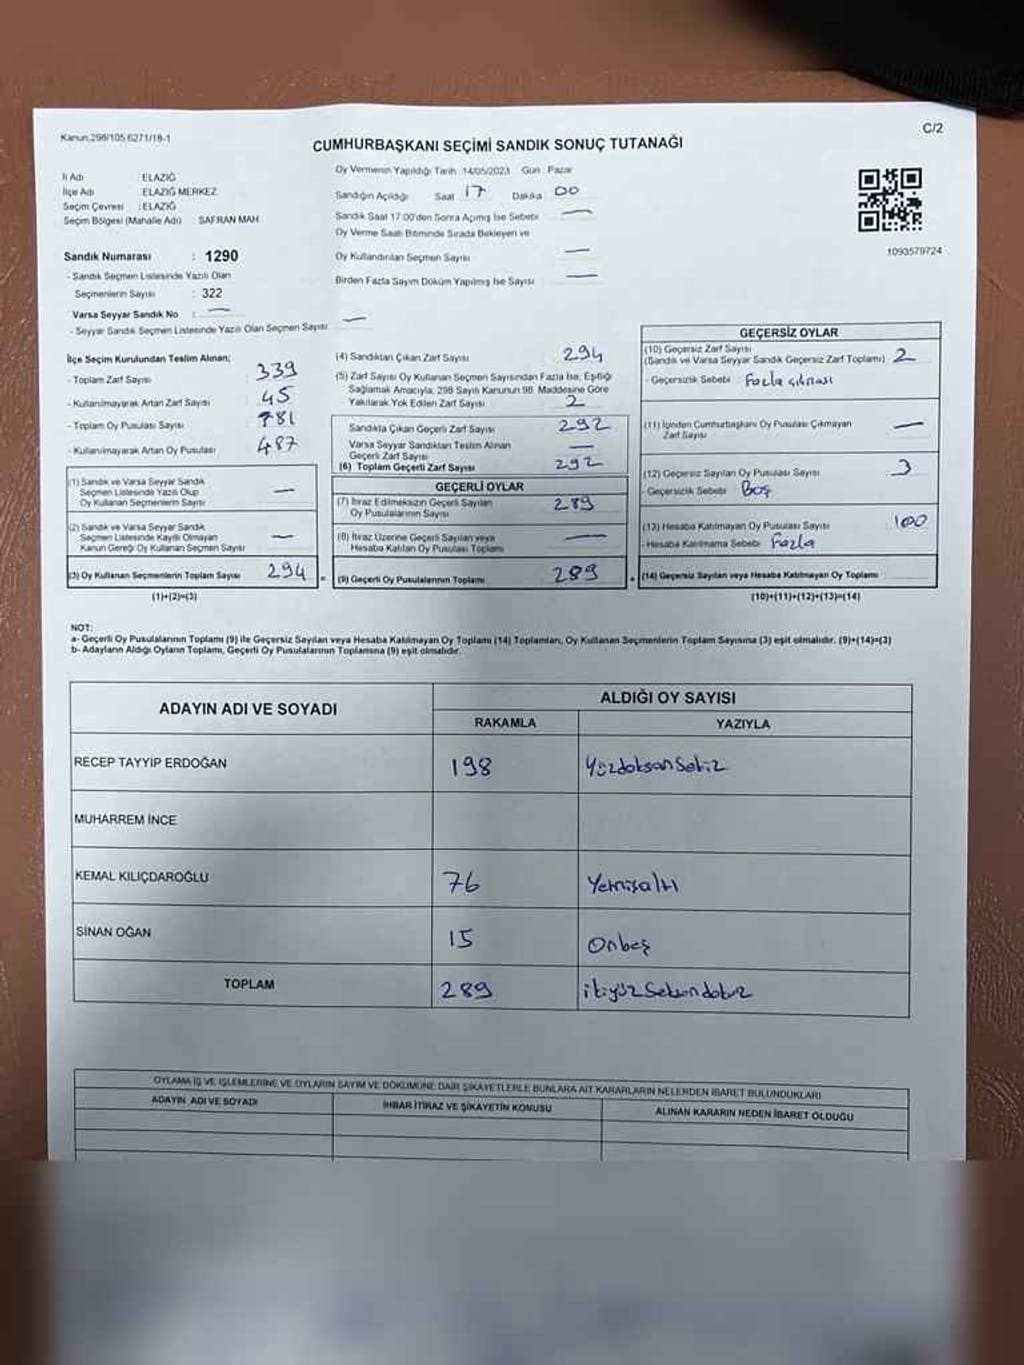 Kanun:298/105,6271/18-1
C/2
CUMHURBAŞKANI SEÇİMİ SANDIK SONUÇ TUTANAĞI
İl Adı ELAZIĞ
İlçe Adı ELAZIĞ MERKEZ
Seçim Çevresi :ELAZIĞ
Seçim Bölgesi (Mahalle Adı) : SAFRAN MAH.
Oy Vermenin Yapıldığı Tarih :14/05/2023 Gün : Pazar
Sandığın Açıldığı Saat 17 Dakika 00
Sandık Saat 17.00'den Sonra Açımış İse Sebebi —
Oy Verme Saati Bitiminde Sırada Bekleyen ve
Oy Kullandırılan Seçmen Sayısı —
Birden Fazla Sayım Döküm Yapılmış İse Sayısı —
1093579724
Sandık Numarası : 1290
- Sandık Seçmen Listesinde Yazılı Olan
Seçmenlerin Sayısı : 322
Varsa Seyyar Sandık No : —
- Seyyar Sandık Seçmen Listesinde Yazılı Olan Seçmen Sayısı —
İlçe Seçim Kurulundan Teslim Alınan;
- Toplam Zarf Sayısı : 339
- Kullanılmayarak Artan Zarf Sayısı : 45
- Toplam Oy Pusulası Sayısı : 781
- Kullanılmayarak Artan Oy Pusulası : 487
(1) Sandık ve Varsa Seyyar Sandık
Seçmen Listesinde Yazılı Olup
Oy Kullanan Seçmenlerin Sayısı —
(2) Sandık ve Varsa Seyyar Sandık
Seçmen Listesinde Kayıtlı Olmayan
Kanun Gereği Oy Kullanan Seçmen Sayısı —
(3) Oy Kullanan Seçmenlerin Toplam Sayısı 294
(1)+(2)=(3)
(4) Sandıktan Çıkan Zarf Sayısı 294
(5) Zarf Sayısı Oy Kullanan Seçmen Sayısından Fazla İse, Eşitliği
Sağlamak Amacıyla; 298 Sayılı Kanunun 98. Maddesine Göre
Yakılarak Yok Edilen Zarf Sayısı 2
Sandıkta Çıkan Geçerli Zarf Sayısı 292
Varsa Seyyar Sandıktan Teslim Alınan
Geçerli Zarf Sayısı —
(6) Toplam Geçerli Zarf Sayısı 292
GEÇERLİ OYLAR
(7) İtiraz Edilmeksizin Geçerli Sayılan
Oy Pusulalarının Sayısı 289
(8) İtiraz Üzerine Geçerli Sayılan veya
Hesaba Katılan Oy Pusulaları Toplamı —
(9) Geçerli Oy Pusulalarının Toplamı 289
GEÇERSİZ OYLAR
(10) Geçersiz Zarf Sayısı
(Sandık ve Varsa Seyyar Sandık Geçersiz Zarf Toplamı) 2
- Geçersizlik Sebebi : Fazla çıkması
(11) İçinden Cumhurbaşkanı Oy Pusulası Çıkmayan
Zarf Sayısı —
(12) Geçersiz Sayılan Oy Pusulası Sayısı 3
- Geçersizlik Sebebi : Boş
(13) Hesaba Katılmayan Oy Pusulası Sayısı 100
- Hesaba Katılmama Sebebi : Fazla
(14) Geçersiz Sayılan veya Hesaba Katılmayan Oy Toplamı
(10)+(11)+(12)+(13)=(14)
NOT:
a- Geçerli Oy Pusulalarının Toplamı (9) ile Geçersiz Sayılan veya Hesaba Katılmayan Oy Toplamı (14) Toplamları, Oy Kullanan Seçmenlerin Toplam Sayısına (3) eşit olmalıdır. (9)+(14)=(3)
b- Adayların Aldığı Oyların Toplamı, Geçerli Oy Pusulalarının Toplamına (9) eşit olmalıdır.
ADAYIN ADI VE SOYADI
ALDIĞI OY SAYISI
RAKAMLA YAZIYLA
RECEP TAYYİP ERDOĞAN 198 Yüzdoksansekiz
MUHARREM İNCE
KEMAL KILIÇDAROĞLU 76 Yetmişaltı
SİNAN OĞAN 15 Onbeş
TOPLAM 289 ikiyüzseksendokuz
OYLAMA İŞ VE İŞLEMLERİNE VE OYLARIN SAYIM VE DÖKÜMÜNE DAİR ŞİKAYETLERLE BUNLARA AİT KARARLARIN NELERDEN İBARET BULUNDUKLARI
ADAYIN ADI VE SOYADI İHBAR İTİRAZ VE ŞİKAYETİN KONUSU ALINAN KARARIN NEDEN İBARET OLDUĞU